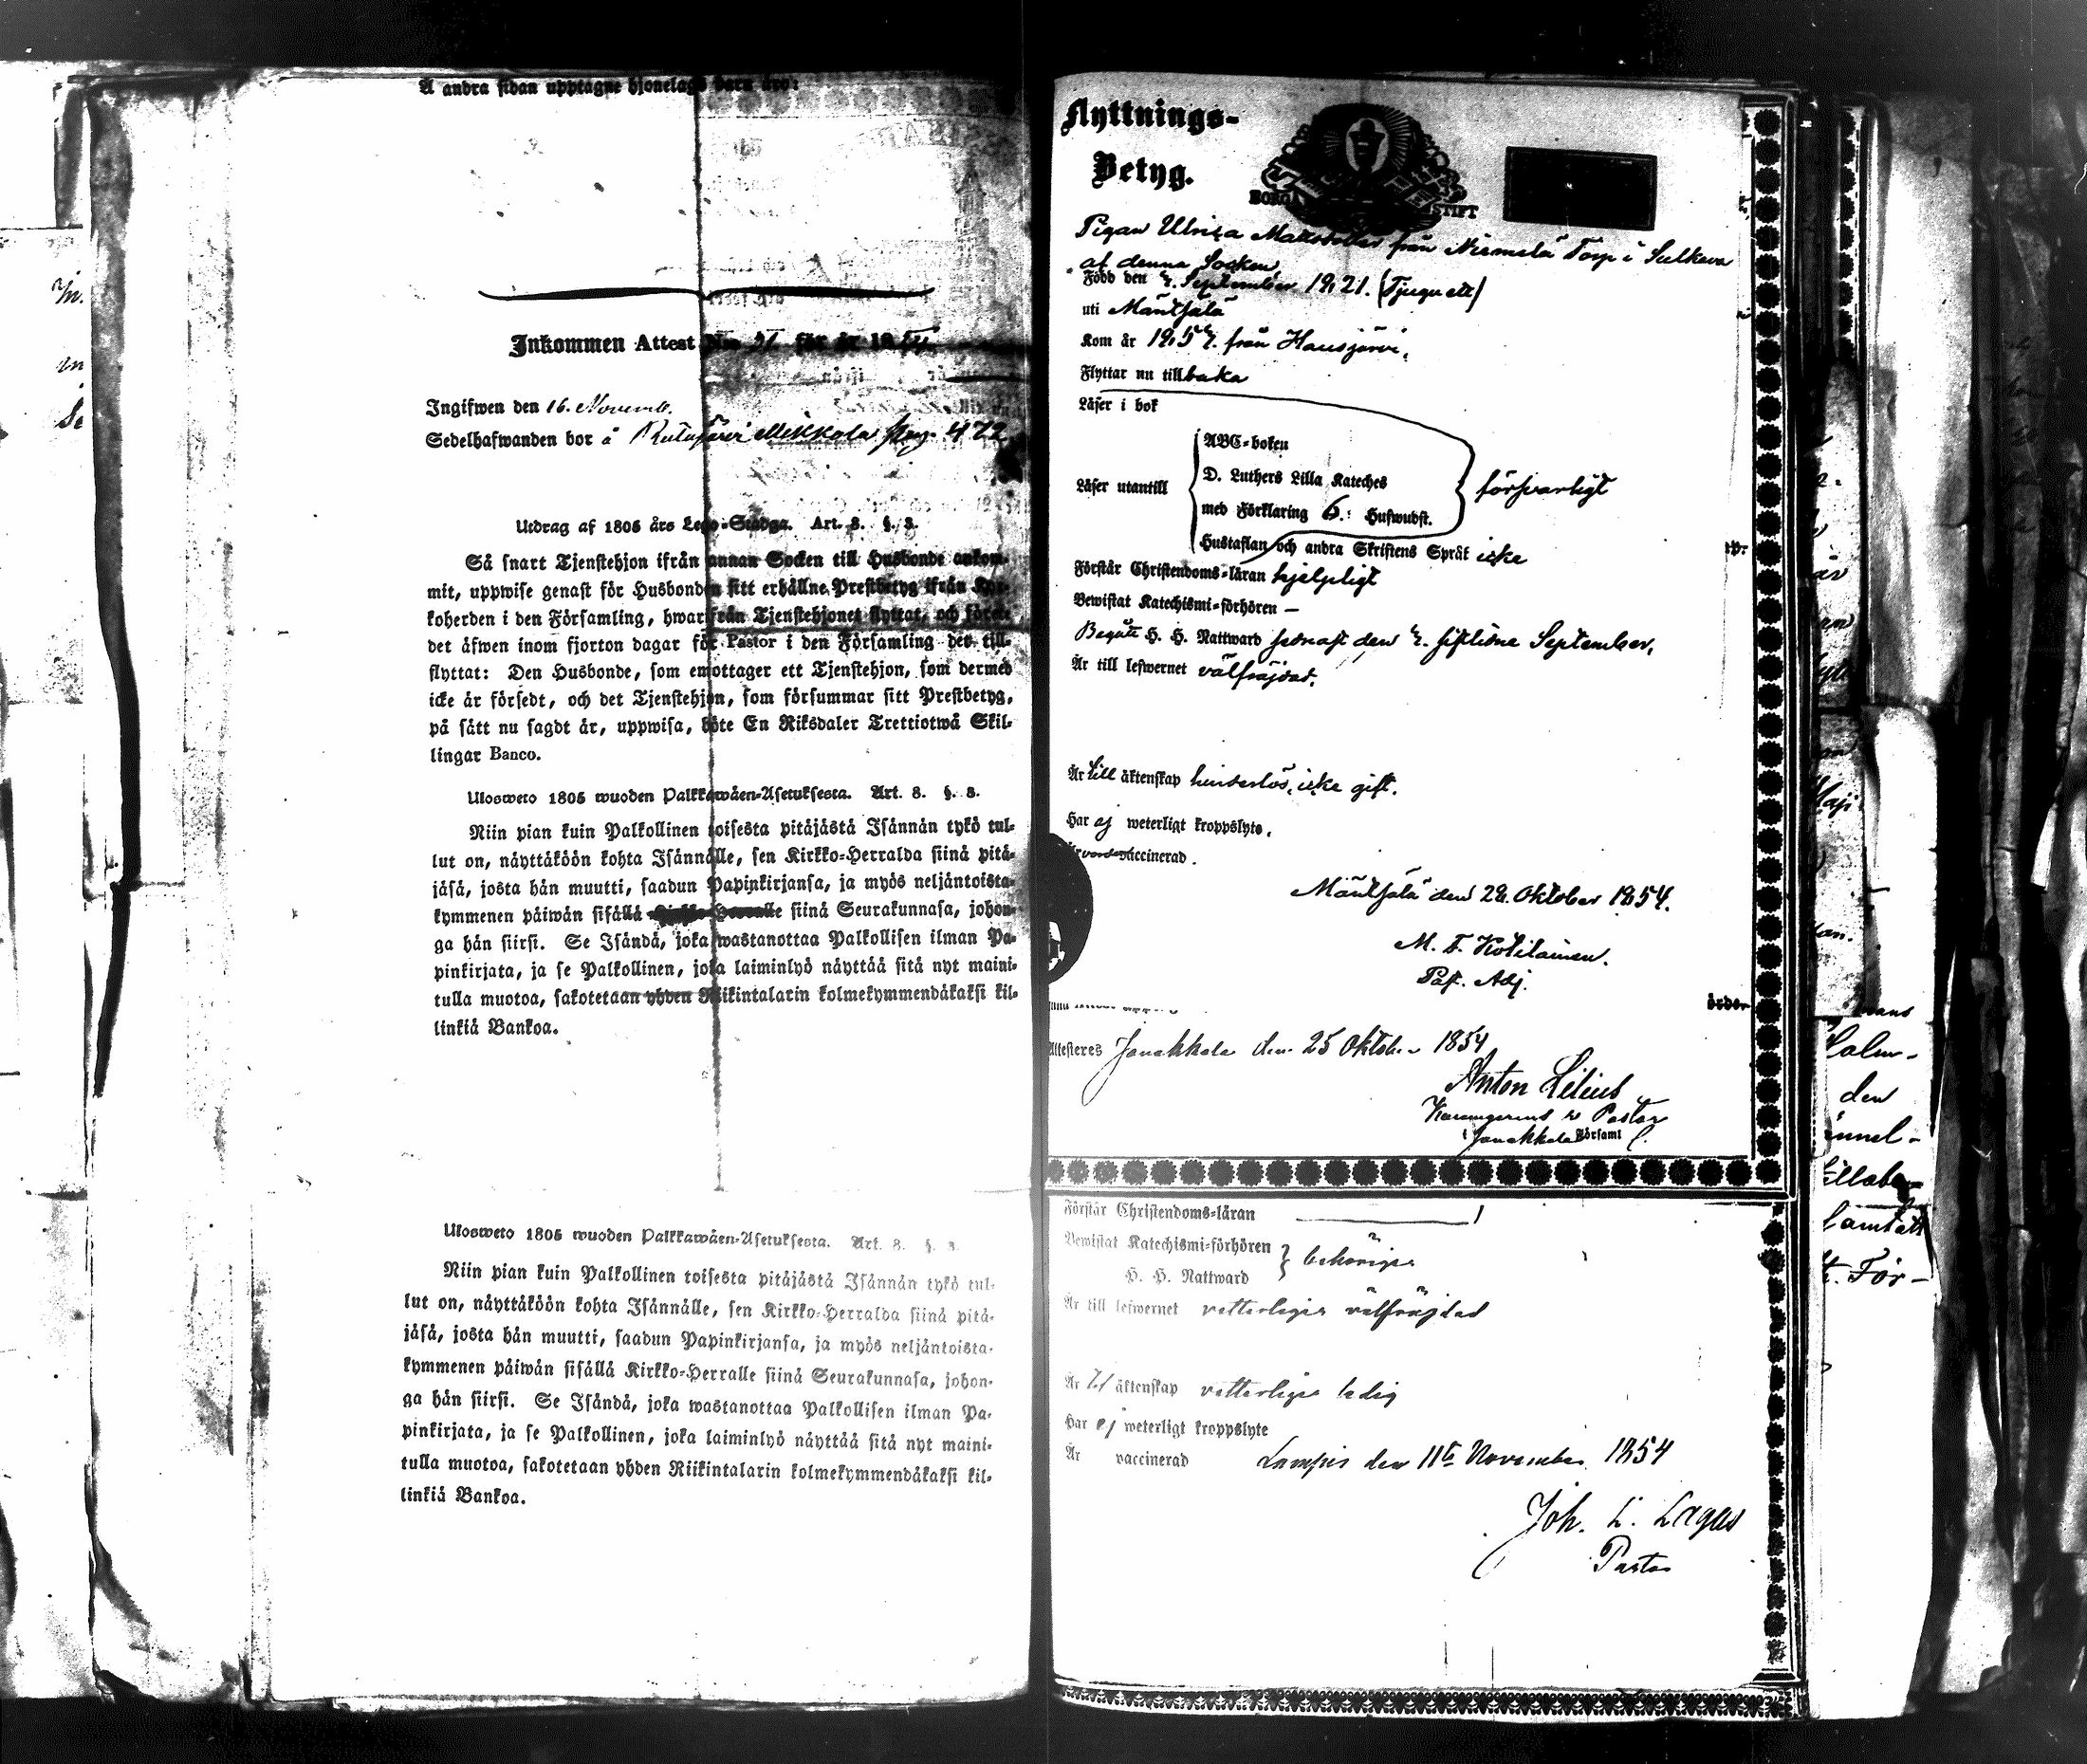 Å andra sidan upptagne hjonelags barn äro:
Inkommen Attest N:o 31 för år 1854.
Ingifwen den 16. Novemb.
Sedelhafwanden bor å Rutajärvi Mikkola pag. 472
Utdrag af 1805 års Lego-Stadga. Art. 8. §. 3.
Så snart Tjenstehjon ifrån annan Socken till Husbonde ankom-
mit, uppwise genast för Husbonden sitt erhållne Prestbetyg ifrån Kyr-
koherden i den Församling, hwarifrån Tjenstehjonet flyttat, och förete
det äfwen inom fjorton dagar för Pastor i den Församling det till-
flyttat: Den Husbonde, som emottager ett Tjenstehjon, som dermed
icke är försedt, och det Tjenstehjon, som försummar sitt Prestbetyg,
på sätt nu sagdt är, uppwisa, böte En Riksdaler Trettiotwå Skil-
lingar Banco.
Ulosweto 1805 wuoden Palkkawäen-Asetuksesta. Art. 8. §. 3.
Niin pian kuin Palkollinen toisesta pitäjästä Isännän tykö tul-
lut on, näyttäköön kohta Isännälle, sen Kirkko-Herralda siinä pitä-
jäsä, josta hän muutti, saadun Papinkirjansa, ja myös neljäntoista-
kymmenen päiwän sisällä Kirkko-Herralle siinä Seurakunnasa, johon-
ga hän siirsi. Se Isändä, joka wastanottaa Palkollisen ilman Pa-
pinkirjata, ja se Palkollinen, joka laiminlyö näyttää sitä nyt maini-
tulla muotoa, sakotetaan yhden Riikintalarin kolmekymmendäkaksi kil-
linkiä Bankoa.
Ulosweto 1805 wuoden Palkkawäen-Asetuksesta. Art. 8. §. 3.
Niin pian kuin Palkollinen toisesta pitäjästä Isännän tykö tul-
lut on, näyttäköön kohta Isännälle, sen Kirkko-Herralda siinä pitä-
jäsä, josta hän muutti, saadun Papinkirjansa, ja myös neljäntoista-
kymmenen päiwän sisällä Kirkko-Herralle siinä Seurakunnasa, johon-
ga hän siirsi. Se Isändä, joka wastanottaa Palkollisen ilman Pa-
pinkirjata, ja se Palkollinen, joka laiminlyö näyttää sitä nyt maini-
tulla muotoa, sakotetaan yhden Riikintalarin kolmekymmendäkaksi kil-
linkiä Bankoa.
Flyttnings-
Betyg.
BORGÅ STIFT
Pigan Ulrica Mattsdotter från Niemelä Torp i Sulkava
af denna Socken,
Född den 4. September 1821. (Tjuguett)
uti Mäntsälä
Kom år 1854. från Hausjärvi,
Flyttar nu tillbaka
Läser i bok
ABC-boken
D. Luthers Lilla Kateches
Läser utantill
försvarligt
med Förklaring 6. Hufwudst.
Hustaflan och andra Skriftens Språk icke
Förstår Christendoms-läran hjelpligt
Bewistat Katechismi-förhören —
Begått H. H. Nattward sednast den 4. sistlidne September,
Är till lefwernet välfräjdad.
Är till äktenskap hinderlös, icke gift.
Har ej weterligt kroppslyte,
vaccinerad.
Mäntsälä den 28. Oktober 1854.
M. F. Kotilainen.
Past. Adj.
Attesteres Janakkala den 25 Oktober 1854
Anton Lilius
Pastor
i Janakkala Församl
Förstår Christendoms-läran
Bewistat Katechismi-förhören
behörigen
H. H. Nattward
Är till lefwernet vetterligen välfräjdad
Är till äktenskap vetterligen ledig
Har ej weterligt kroppslyte
Är vaccinerad
Lampis den 11te November 1854
Joh. L. Lagus
Pastor
den